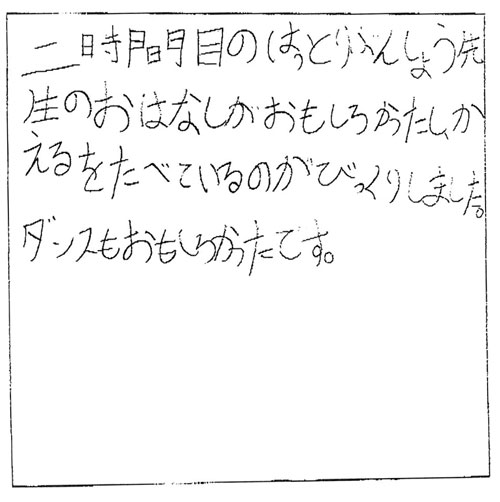 二時間目のはっとりぶんしょう先
生のおはなしがおもしろかったし、か
えるをたべているのがびっくりしました。
ダンスもおもしろかったです。